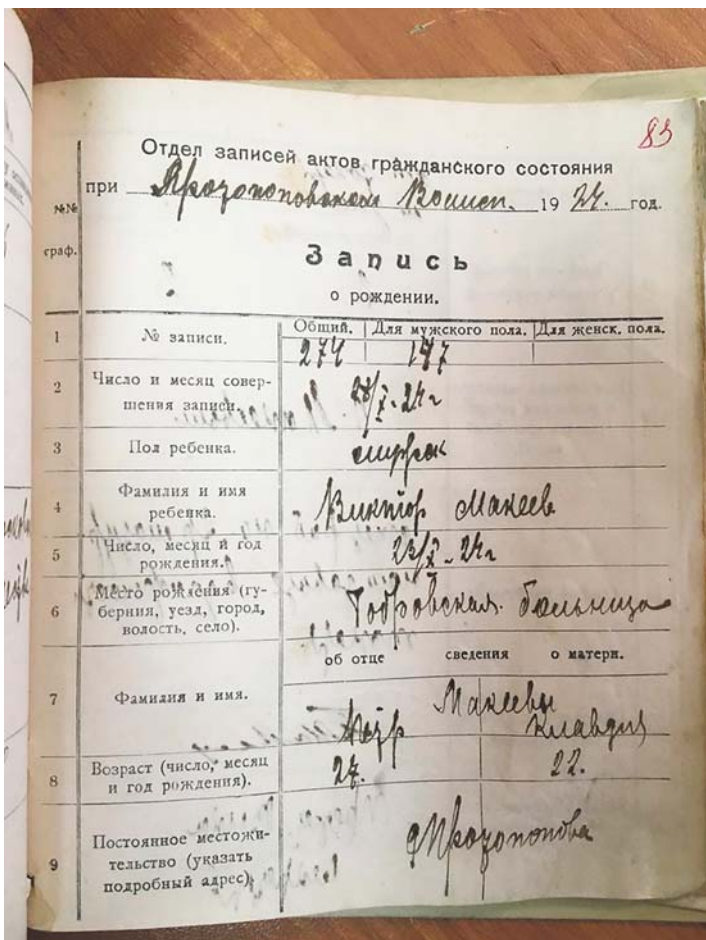 83
Отдел записей актов гражданского состояния
при Прозоповском Волисп. 1924. год.
№№ граф.
Запись
о рождении.
Общий. Для мужского пола. Для женск. пола.
1 № записи. 274 147
2 Число и месяц совер-
шения записи. 28/X-24 г
3 Пол ребенка. мужск
4 Фамилия и имя
ребенка. Виктор Макеев
5 Число, месяц и год
рождения. 23/X-24 г
6 Место рождения (гу-
берния, уезд, город,
волость, село). больница
об отце сведения о матери.
7 Фамилия и имя. Макеевы
Петр Клавдия
8 Возраст (число, месяц
и год рождения). 27. 22.
9 Постоянное местожи-
тельство (указать
подробный адрес).